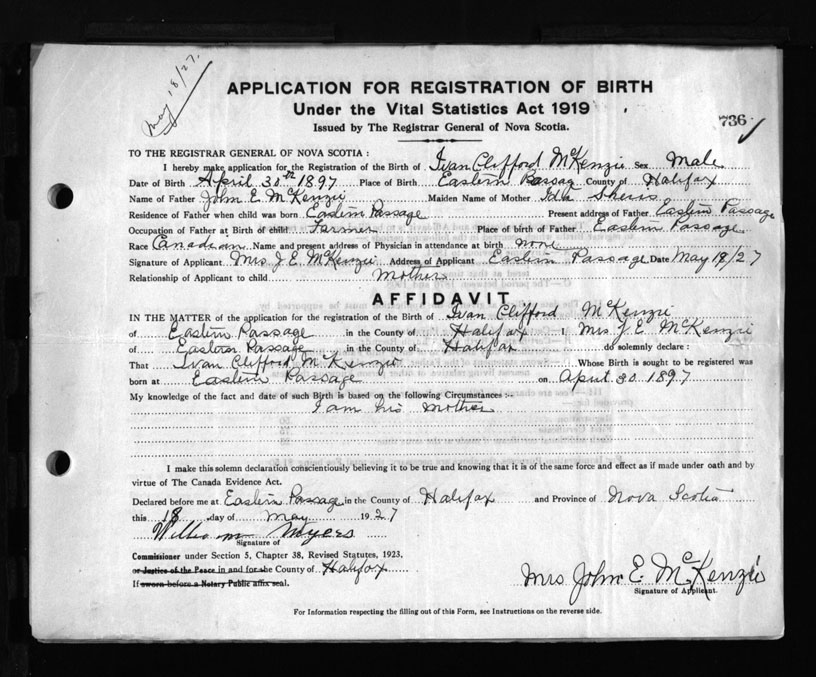 May 18/27.
APPLICATION FOR REGISTRATION OF BIRTH
Under the Vital Statistics Act 1919
Issued by The Registrar General of Nova Scotia.
736
TO THE REGISTRAR GENERAL OF NOVA SCOTIA:
I hereby make application for the Registration of the Birth of Ivan Clifford McKenzie Sex Male
Date of Birth April 30th 1897 Place of Birth Eastern Passag County of Halifax
Name of Father John E. McKenzie Maiden Name of Mother Ida
Residence of Father when child was born Eastern Passage Present address of Father Eastern Passage
Occupation of Father at Birth of child Farmer Place of birth of Father Eastern Passage
Race Canadian Name and present address of Physician in attendance at birth none
Signature of Applicant Mrs J. E. McKenzie Address of Applicant Eastern Passage Date May 18/27
Relationship of Applicant to child mother
AFFIDAVIT
IN THE MATTER of the application for the registration of the Birth of Ivan Clifford McKenzie
of Eastern Passage in the County of Halifax I, Mrs J. E. McKenzie
of Eastern Passage in the County of Halifax do solemnly declare:
That Ivan Clifford McKenzie Whose Birth is sought to be registered was
born at Eastern Passage on April 30 1897
My knowledge of the fact and date of such Birth is based on the following Circumstances:-
I am his mother
I make this solemn declaration conscientiously believing it to be true and knowing that it is of the same force and effect as if made under oath and by
virtue of The Canada Evidence Act.
Declared before me at Eastern Passage in the County of Halifax and Province of Nova Scotia
this 18 day of May 1927
Myers
Signature of
Commissioner under Section 5, Chapter 38, Revised Statutes, 1923.
or Justice of the Peace in and for the County of Halifax
If sworn before a Notary Public affix seal.
Mrs John E. McKenzie
Signature of Applicant.
For Information respecting the filling out of this Form, see Instructions on the reverse side.